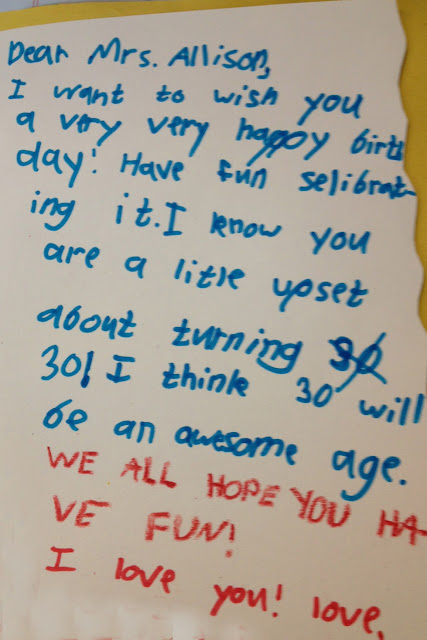 Dear Mrs. Allison,
I want to wish you
a very very happy birth
day! Have fun selibrat-
ing it. I know you
are a litle upset
about turning 30
30! I think 30 will
be an awesome age.
WE ALL HOPE YOU HA-
VE FUN!
I love you! love,